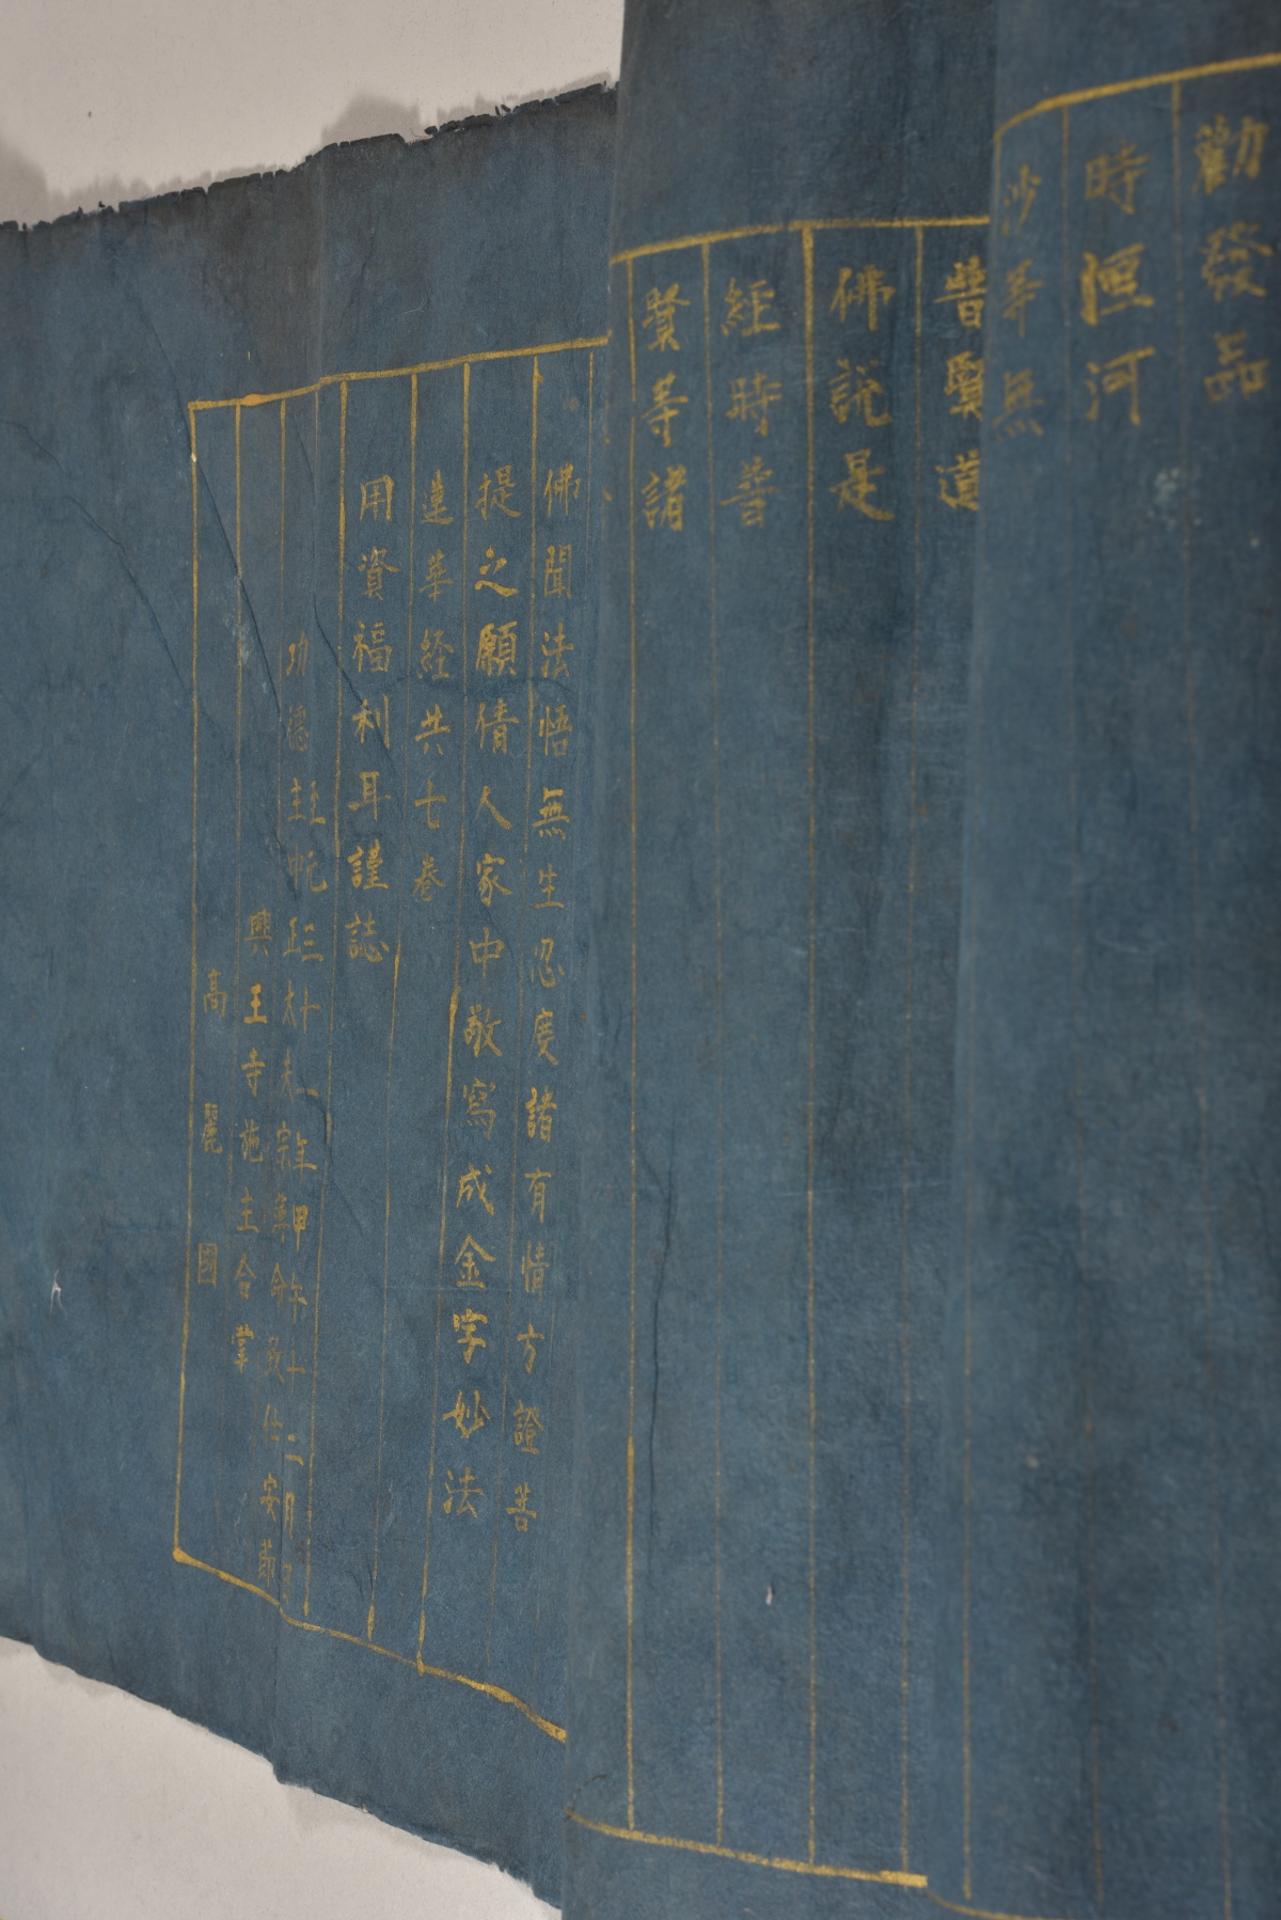 勸發品
時恒河
沙等無
普賢道
佛説是
經時普
賢等諸
佛聞法悟無生忍度諸有情方證菩
提之願倩人家中敬寫成金字妙法
蓮華經共七卷
用資福利耳謹誌
三年甲午十二月日
功德主
興王寺施主合掌
高麗國